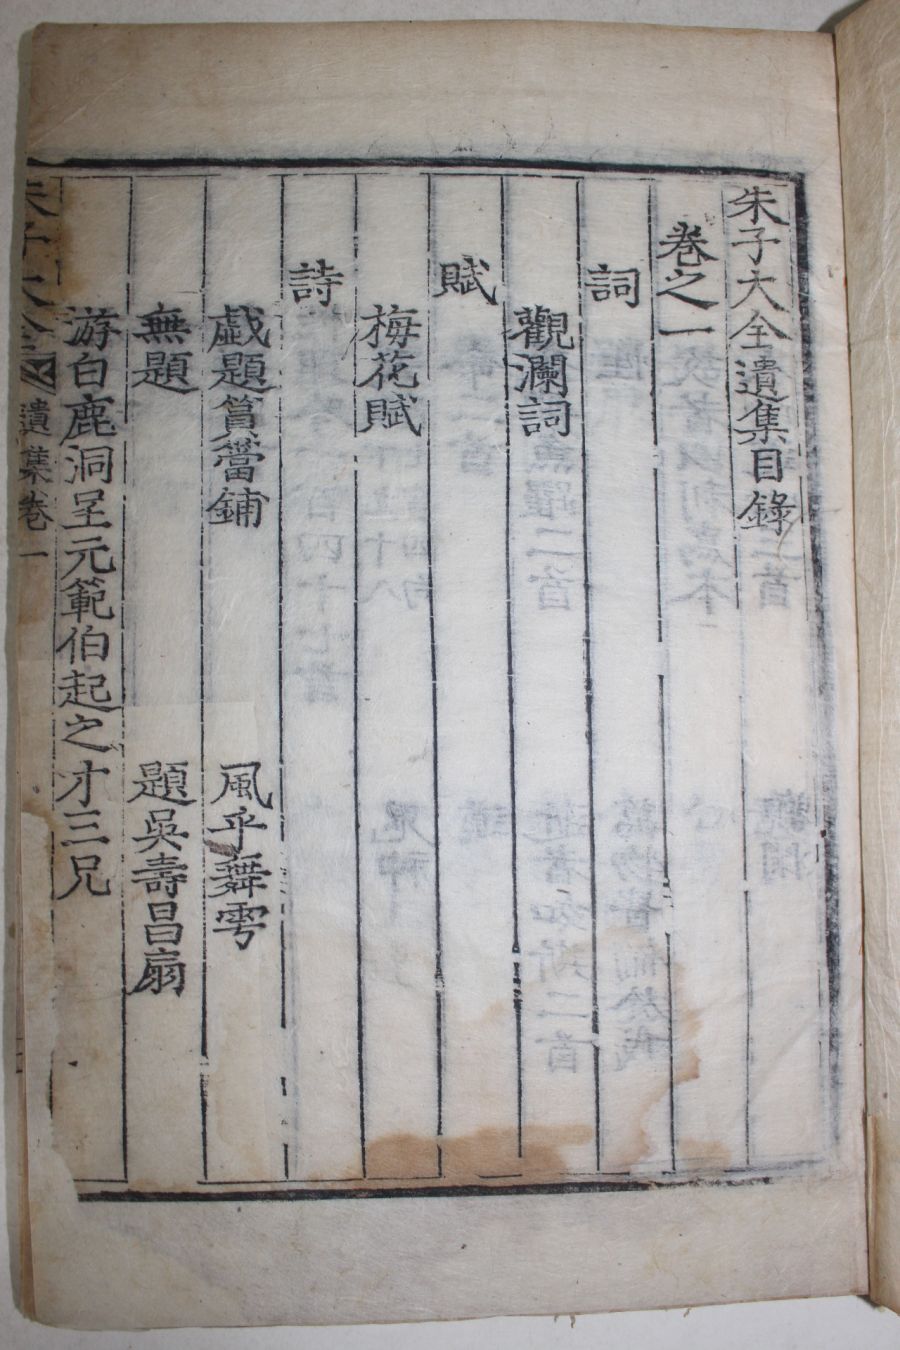 朱子大全遺集目錄
卷之一
詞
觀瀾詞
賦
梅花賦
詩
戱題篔簹鋪 風乎舞雩
無題 題吳壽昌扇
游白鹿洞呈元範伯起之才三兄
朱子大全 遺集卷一